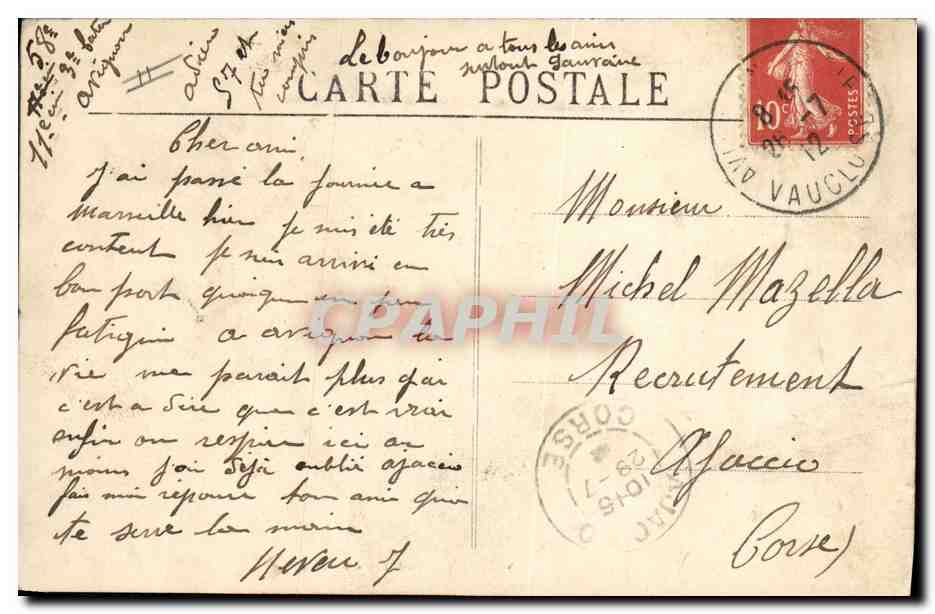 58e
11e Cie 3e bataillon
avignon
adieu
57 et
tu m'as
compris
Le bonjour a tous les amis
surtout Sauvaire
CARTE POSTALE
10c
POSTES
8 45
26 -7
12
AVI
VAUCLUSE
Cher ami
J'ai passé la journée a
Marseille hier je suis été très
content je suis arrivé en
bon port quoique un peu
fatigué a avignon la
vie me parait plus gai
c'est a dire que c'est vrai
enfin on respire ici au
moins j'ai déjà oublié ajaccio
fais moi réponse ton ami qui
te serre la main
Neveu J
Monsieur
Michel Mazella
Recrutement
Ajaccio
Corse)
CORSE
10-15
29 -7
CPAPHIL